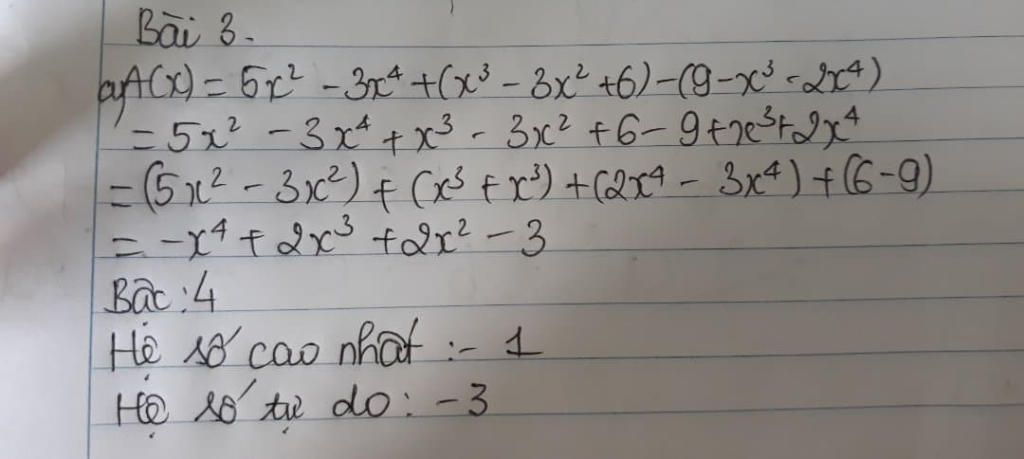 Bài 3.
a, A(x) = 5x² - 3x⁴ + (x³ - 3x² + 6) - (9 - x³ - 2x⁴)
= 5x² - 3x⁴ + x³ - 3x² + 6 - 9 + x³ + 2x⁴
= (5x² - 3x²) + (x³ + x³) + (2x⁴ - 3x⁴) + (6 - 9)
= -x⁴ + 2x³ + 2x² - 3
Bậc : 4
Hệ số cao nhất : - 1
Hệ số tự do : - 3